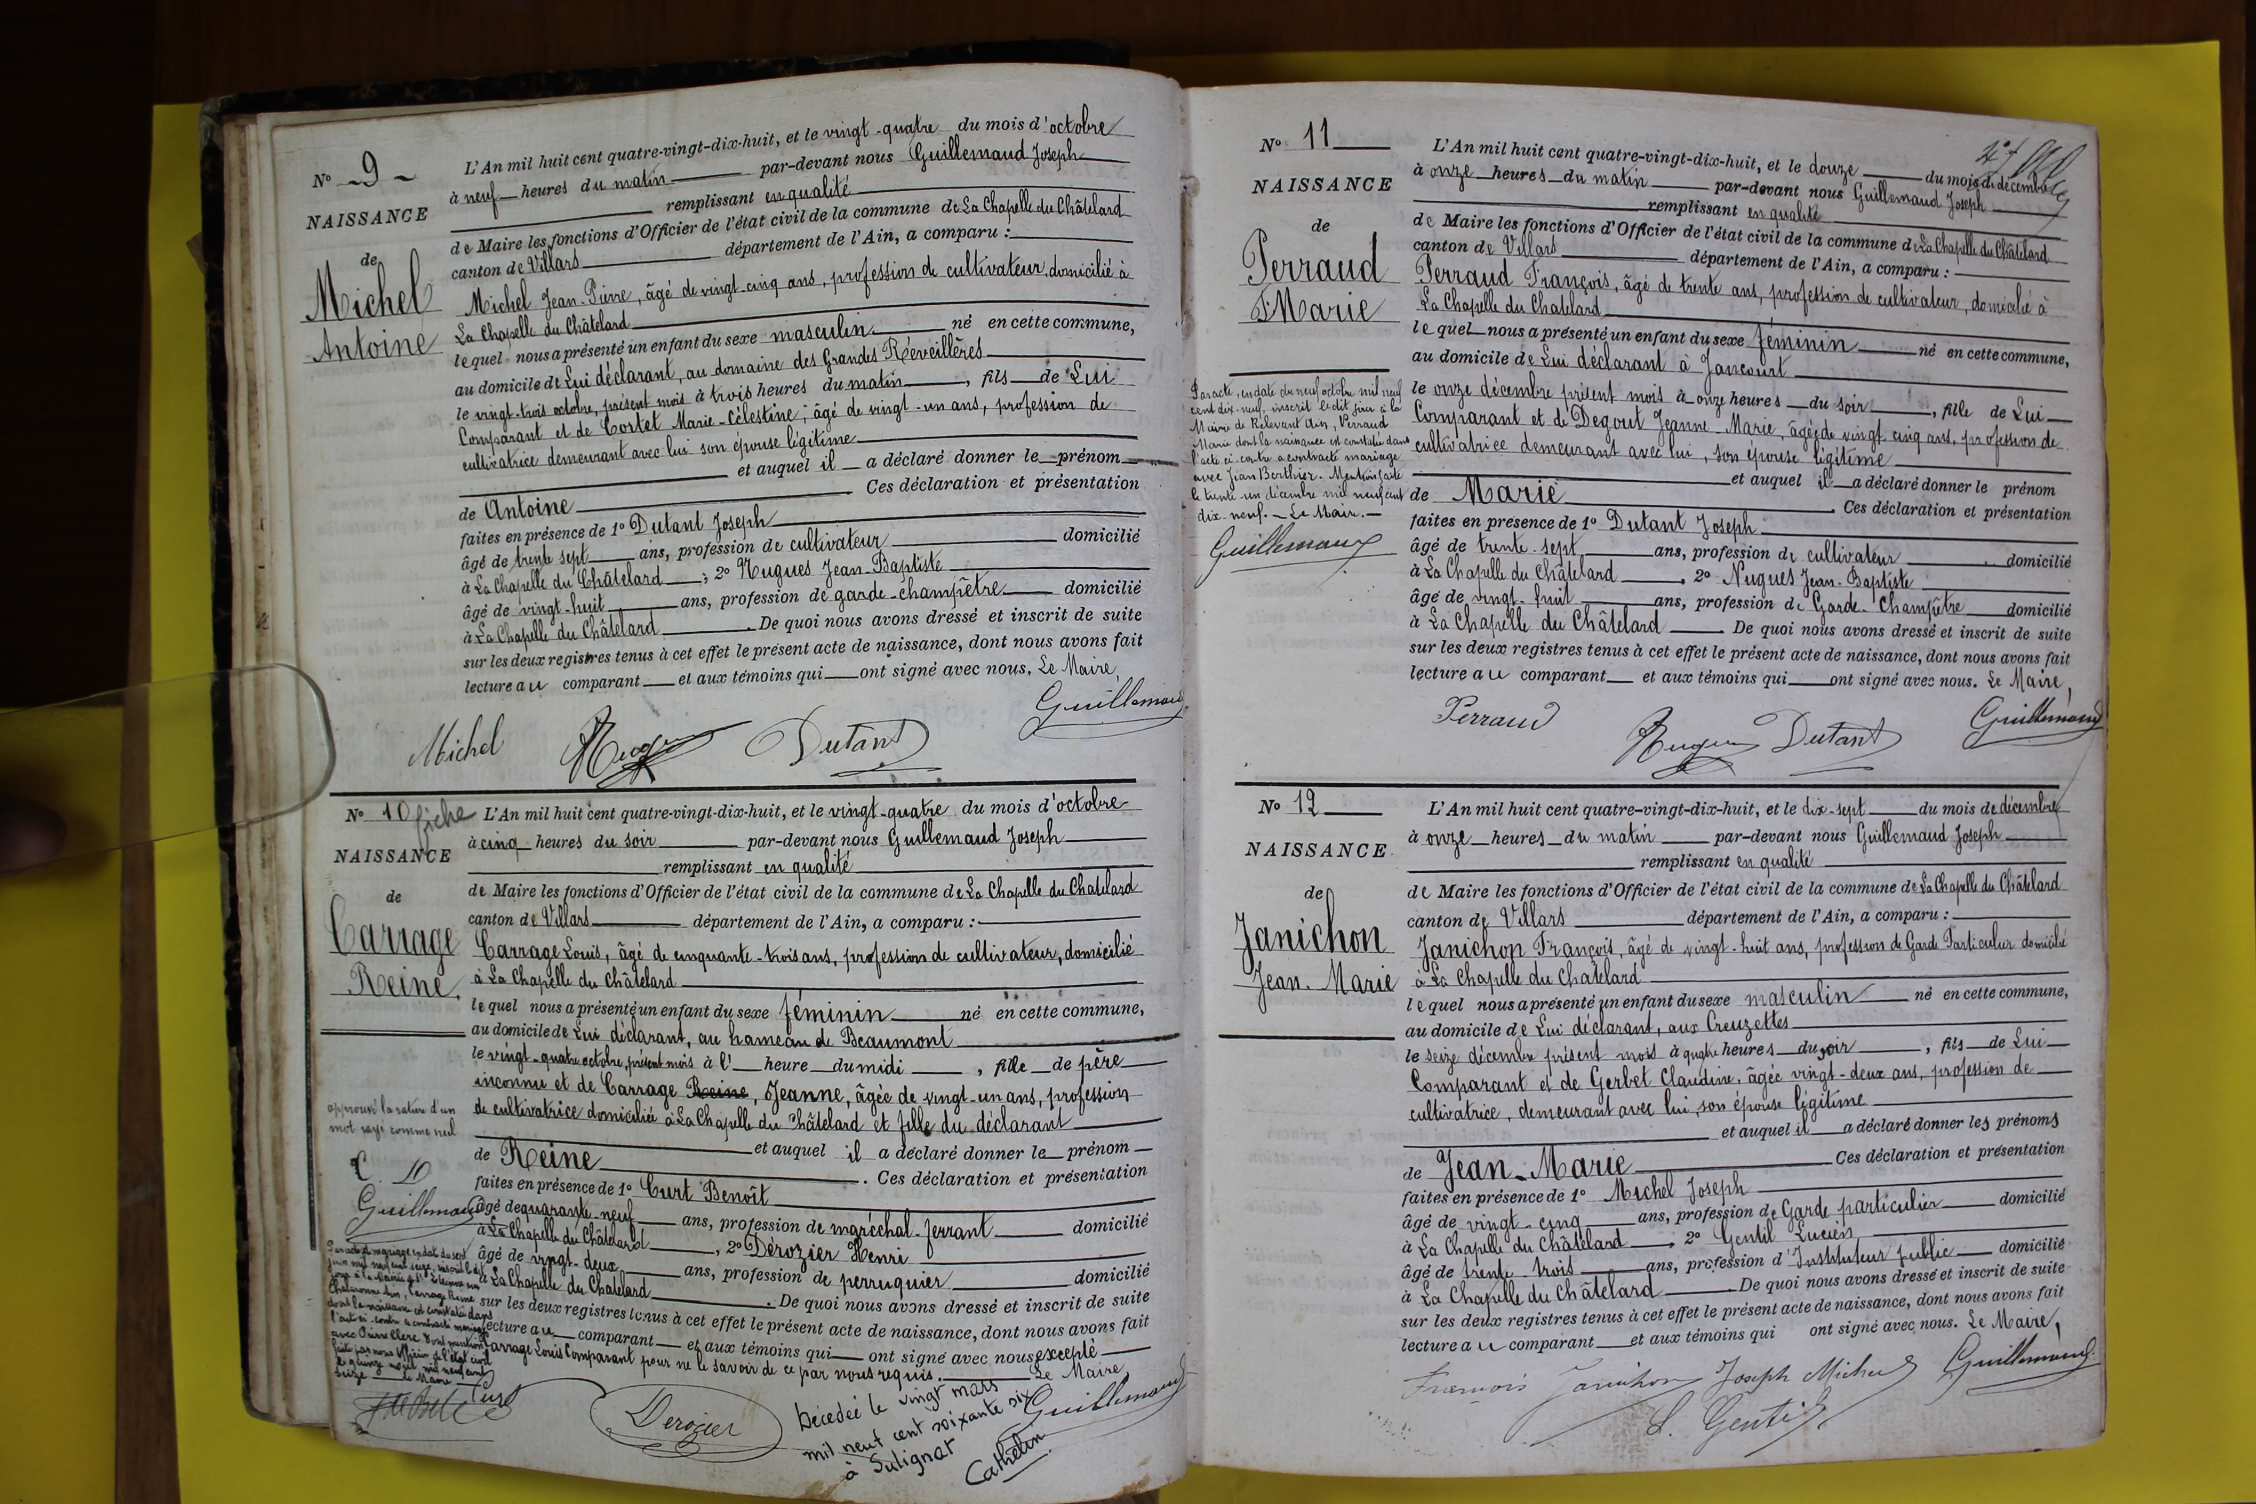 N° 9
NAISSANCE
de
Michel
Antoine
L'An mil huit cent quatre-vingt-dix-huit, et le vingt-quatre du mois d'octobre
à neuf heures du matin par-devant nous Guillemaud Joseph
remplissant en qualité
de Maire les fonctions d'Officier de l'état civil de la commune de La Chapelle du Châtelard
canton de Villars département de l'Ain, a comparu :
Michel Jean-Pierre, âgé de vingt-cinq ans, profession de cultivateur, domicilié à
La Chapelle du Châtelard
lequel nous a présenté un enfant du sexe masculin né en cette commune,
au domicile de Lui déclarant, au domaine des Grandes Réveillères
le vingt-trois octobre, présent mois à trois heures du matin, fils de Lui
Comparant et de Cortet Marie-Célestine, âgée de vingt-un ans, profession de
cultivatrice demeurant avec lui son épouse légitime
et auquel il a déclaré donner le prénom
de Antoine Ces déclaration et présentation
faites en présence de 1° Dutant Joseph
âgé de trente sept ans, profession de cultivateur domicilié
à La Chapelle du Châtelard ; 2° Nugues Jean-Baptiste
âgé de vingt-huit ans, profession de garde-champêtre domicilié
à La Chapelle du Châtelard. De quoi nous avons dressé et inscrit de suite
sur les deux registres tenus à cet effet le présent acte de naissance, dont nous avons fait
lecture au comparant et aux témoins qui ont signé avec nous. Le Maire,
Michel Nugues Dutant Guillemaud
N° 10 fiche
NAISSANCE
de
Carrage
Reine
L'An mil huit cent quatre-vingt-dix-huit, et le vingt-quatre du mois d'octobre
à cinq heures du soir par-devant nous Guillemaud Joseph
remplissant en qualité
de Maire les fonctions d'Officier de l'état civil de la commune de La Chapelle du Chatelard
canton de Villars département de l'Ain, a comparu :
Carrage Louis, âgé de cinquante-trois ans, profession de cultivateur, domicilié
à La Chapelle du Châtelard
lequel nous a présenté un enfant du sexe féminin né en cette commune,
au domicile de Lui déclarant, au hameau de Beaumont
le vingt-quatre octobre, présent mois à l' heure du midi, fille de père
inconnu et de Carrage Reine, Jeanne, âgée de vingt-un ans, profession
de cultivatrice domiciliée à La Chapelle du Châtelard et fille du déclarant
et auquel il a déclaré donner le prénom
de Reine. Ces déclaration et présentation
faites en présence de 1° Curt Benoît
âgé de quarante-neuf ans, profession de maréchal-ferrant domicilié
à La Chapelle du Châtelard, 2° Dérozier Henri
âgé de vingt-deux ans, profession de perruquier domicilié
à La Chapelle du Chatelard. De quoi nous avons dressé et inscrit de suite
sur les deux registres tenus à cet effet le présent acte de naissance, dont nous avons fait
lecture au comparant et aux témoins qui ont signé avec nous excepté
Carrage Louis Comparant pour ne le savoir de ce par nous requis. Le Maire
approuvé la rature d'un
mot rayé comme nul
C. D
Guillemaud
Par acte de mariage en date du sept
juin mil neuf cent seize, inscrit le dit
jour à la Mairie de St
Chalaronne Ain, Carrage Reine
dont la naissance est constatée dans
l'acte ci-contre a contracté mariage
avec Pierre Clerc dont mention
faite par nous Officier de l'état civil
le quinze août mil neuf cent
seize Le Maire
Curt Derozier Guillemaud
Décédée le vingt mars
mil neuf cent soixante six
à Sulignat
Cathelin
N° 11
NAISSANCE
de
Perraud
Marie
L'An mil huit cent quatre-vingt-dix-huit, et le douze du mois de décembre
à onze heures du matin par-devant nous Guillemaud Joseph
remplissant en qualité
de Maire les fonctions d'Officier de l'état civil de la commune de La Chapelle du Châtelard
canton de Villars département de l'Ain, a comparu :
Perraud François, âgé de trente ans, profession de cultivateur, domicilié à
La Chapelle du Chatelard
lequel nous a présenté un enfant du sexe féminin né en cette commune,
au domicile de Lui déclarant à Jancourt
le onze décembre présent mois à onze heures du soir, fille de Lui
Comparant et de Degout Jeanne-Marie, âgée de vingt-cinq ans, profession de
cultivatrice demeurant avec lui, son épouse légitime
et auquel il a déclaré donner le prénom
de Marie. Ces déclaration et présentation
faites en présence de 1° Dutant Joseph
âgé de trente-sept ans, profession de cultivateur domicilié
à La Chapelle du Châtelard, 2° Nugues Jean-Baptiste
âgé de vingt-huit ans, profession de Garde-Champêtre domicilié
à La Chapelle du Châtelard. De quoi nous avons dressé et inscrit de suite
sur les deux registres tenus à cet effet le présent acte de naissance, dont nous avons fait
lecture au comparant et aux témoins qui ont signé avec nous. Le Maire,
Par acte, en date du neuf octobre mil neuf
cent dix-neuf, inscrit le dit jour à la
Mairie de Relevant Ain, Perraud
Marie dont la naissance est constatée dans
l'acte ci-contre a contracté mariage
avec Jean Berthier. Mention faite
le trente un décembre mil neuf cent
dix-neuf. - Le Maire. -
Guillemaud
Perraud Nugues Dutant Guillemaud
N° 12
NAISSANCE
de
Janichon
Jean-Marie
L'An mil huit cent quatre-vingt-dix-huit, et le dix-sept du mois de décembre
à onze heures du matin par-devant nous Guillemaud Joseph
remplissant en qualité
de Maire les fonctions d'Officier de l'état civil de la commune de La Chapelle du Châtelard
canton de Villars département de l'Ain, a comparu :
Janichon François, âgé de vingt-huit ans, profession de Garde Particulier domicilié
à La Chapelle du Châtelard
lequel nous a présenté un enfant du sexe masculin né en cette commune,
au domicile de Lui déclarant, aux Creuzettes
le seize décembre présent mois à quatre heures du soir, fils de Lui
Comparant et de Gerbet Claudine, âgée vingt-deux ans, profession de
cultivatrice, demeurant avec lui, son épouse légitime
et auquel il a déclaré donner les prénoms
de Jean-Marie Ces déclaration et présentation
faites en présence de 1° Michel Joseph
âgé de vingt-cinq ans, profession de Garde particulier domicilié
à La Chapelle du Châtelard, 2° Gentil Lucien
âgé de trente-trois ans, profession d'Instituteur public domicilié
à La Chapelle du Châtelard. De quoi nous avons dressé et inscrit de suite
sur les deux registres tenus à cet effet le présent acte de naissance, dont nous avons fait
lecture au comparant et aux témoins qui ont signé avec nous. Le Maire,
Francois Janichon Joseph Michel Guillemaud
L. Gentil